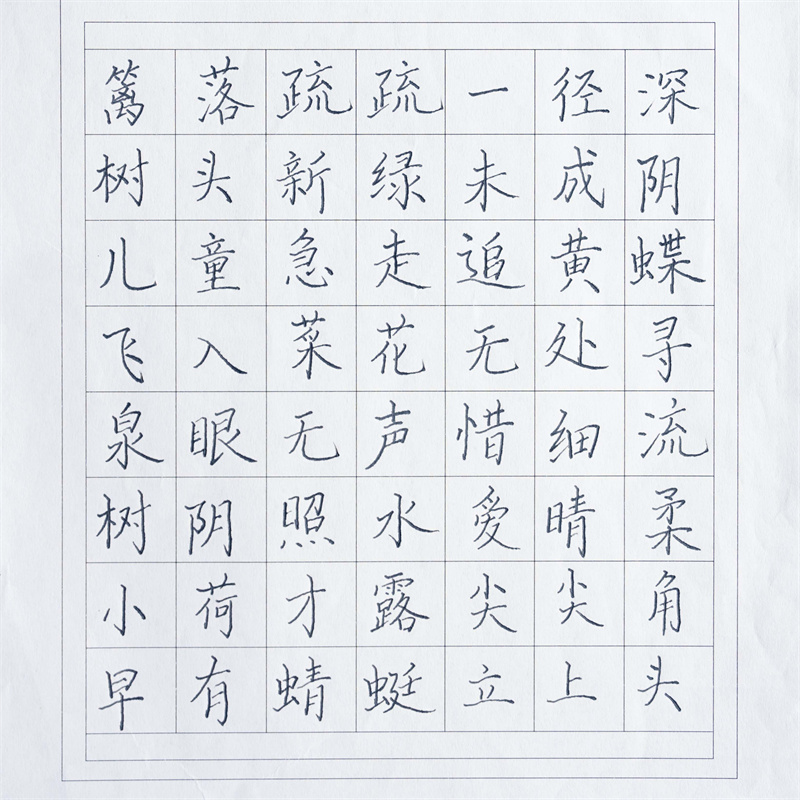 篱落疏疏一径深
树头新绿未成阴
儿童急走追黄蝶
飞入菜花无处寻
泉眼无声惜细流
树阴照水爱晴柔
小荷才露尖尖角
早有蜻蜓立上头